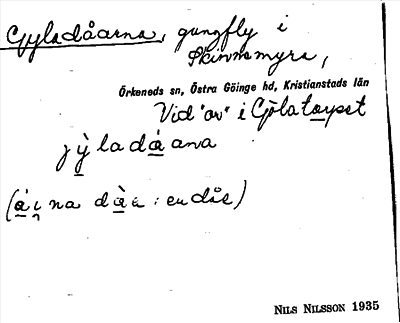 Gyladåarna, gungfly i
Skinnsmyra,
Örkeneds sn, Östra Göinge hd, Kristianstads län
Vid "av" i Gölatorpset
jỳladáana
(á i na dàa: en dås)
NILS NILSSON 1935